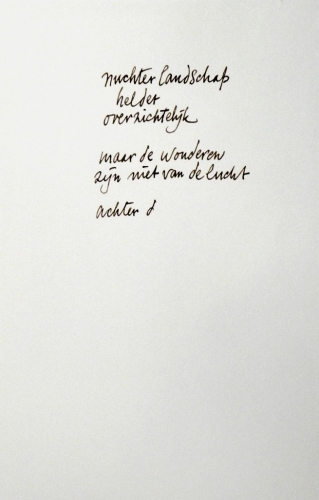 nuchter landschap
helder
overzichtelijk
maar de wonderen
zijn niet van de lucht
achter d